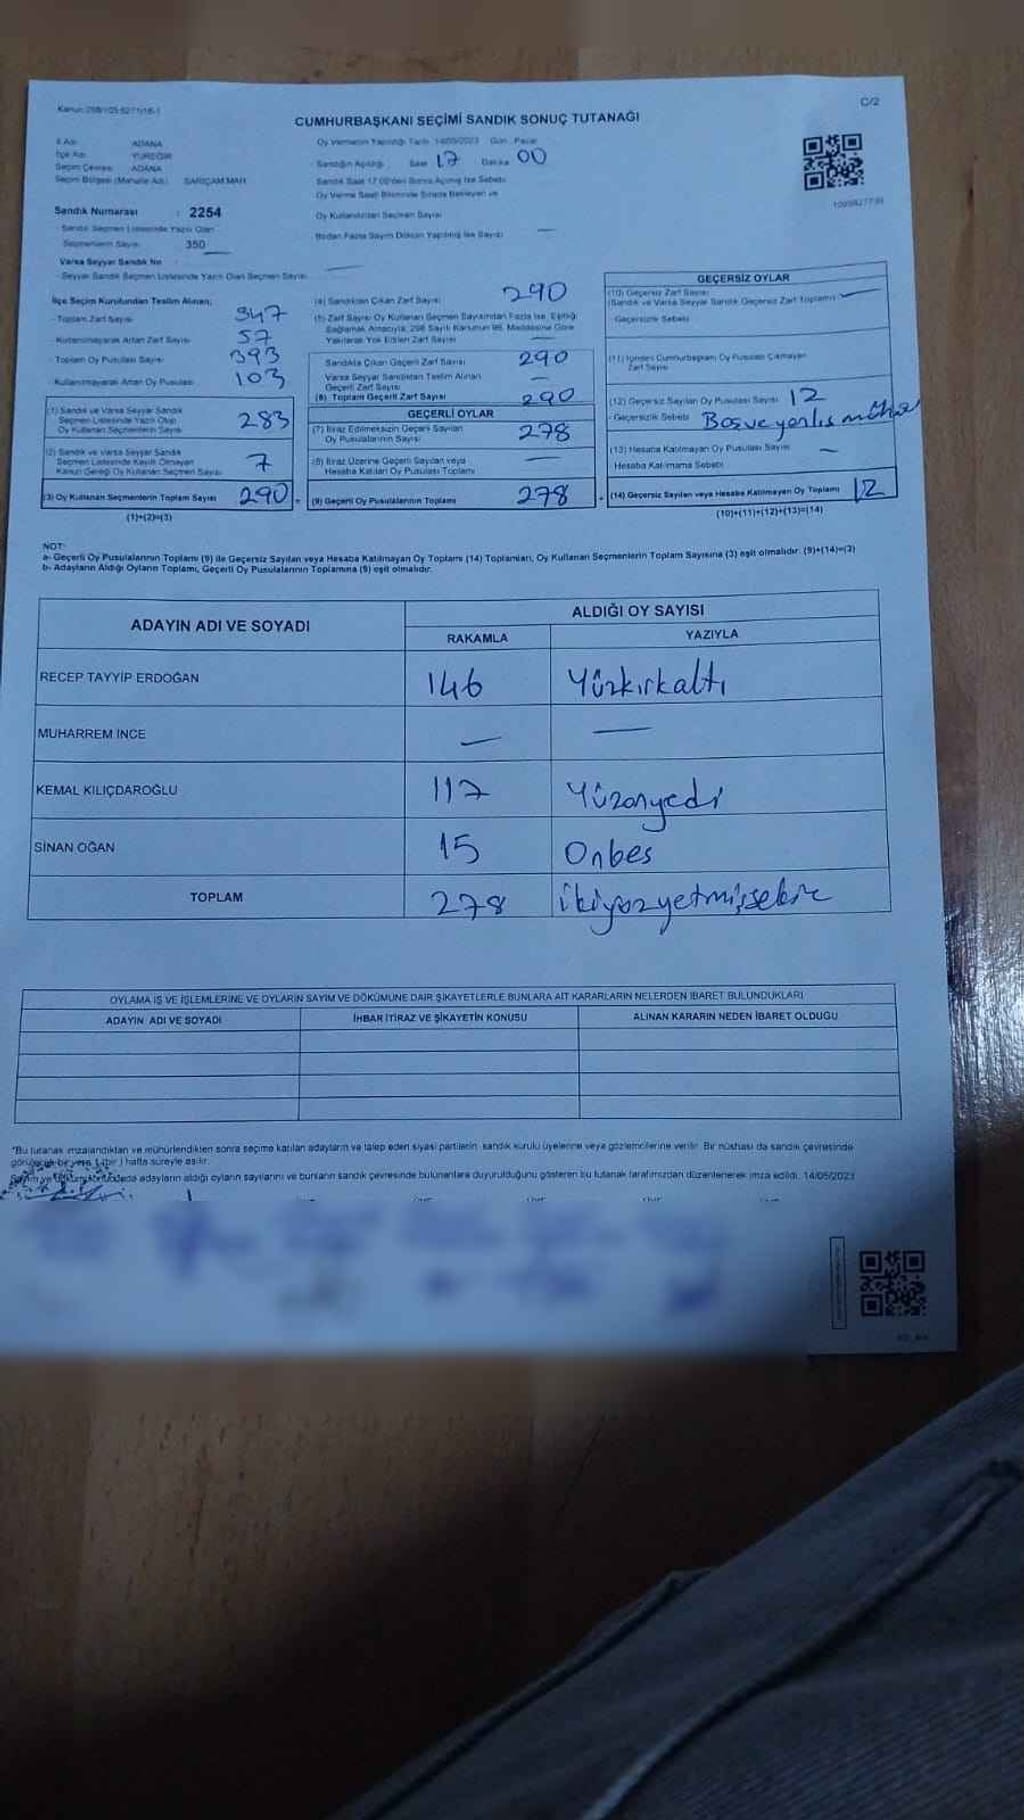 C/2
CUMHURBAŞKANI SEÇİMİ SANDIK SONUÇ TUTANAĞI
İl Adı ADANA
İlçe Adı YÜREĞİR
Seçim Çevresi ADANA
Seçim Bölgesi (Mahalle Adı) SARIÇAM MAH.
Oy Vermenin Yapıldığı Tarih 14/05/2023 Gün Pazar
Sandığın Açıldığı Saat 17 Dakika 00
Sandık Numarası : 2254
Sandık Seçmen Listesinde Yazılı Olan
Seçmenlerin Sayısı 350
Oy Kullandırılan Seçmen Sayısı
Birden Fazla Sayım Döküm Yapıldığı İse Sayısı —
Varsa Seyyar Sandık No
Seyyar Sandık Seçmen Listesinde Yazılı Olan Seçmen Sayısı —
İlçe Seçim Kurulundan Teslim Alınan;
Toplam Zarf Sayısı 347
Kullanılmayarak Artan Zarf Sayısı 57
Toplam Oy Pusulası Sayısı 393
Kullanılmayarak Artan Oy Pusulası 103
(1) Sandık ve Varsa Seyyar Sandık
Seçmen Listesinde Yazılı Olup
Oy Kullanan Seçmenlerin Sayısı 283
(2) Sandık ve Varsa Seyyar Sandık
Seçmen Listesinde Kayıtlı Olmayan
Kanun Gereği Oy Kullanan Seçmen Sayısı 7
(3) Oy Kullanan Seçmenlerin Toplam Sayısı 290
(1)+(2)=(3)
(4) Sandıktan Çıkan Zarf Sayısı 290
(5) Zarf Sayısı Oy Kullanan Seçmen Sayısından Fazla İse, Eşitliği
Sağlamak Amacıyla, 298 Sayılı Kanunun 98. Maddesine Göre
Yakılarak Yok Edilen Zarf Sayısı —
Sandıkta Çıkan Geçerli Zarf Sayısı 290
Varsa Seyyar Sandıktan Teslim Alınan
Geçerli Zarf Sayısı —
(6) Toplam Geçerli Zarf Sayısı 290
GEÇERLİ OYLAR
(7) İtiraz Edilmeksizin Geçerli Sayılan
Oy Pusulalarının Sayısı 278
(8) İtiraz Üzerine Geçerli Sayılan veya
Hesaba Katılan Oy Pusulası Toplamı —
(9) Geçerli Oy Pusulalarının Toplamı 278
GEÇERSİZ OYLAR
(10) Geçersiz Zarf Sayısı
(Sandık ve Varsa Seyyar Sandık Geçersiz Zarf Toplamı) —
Geçersizlik Sebebi
(11) İçinden Cumhurbaşkanı Oy Pusulası Çıkmayan
Zarf Sayısı
(12) Geçersiz Sayılan Oy Pusulası Sayısı 12
Geçersizlik Sebebi Boş ve yanlış mühür
(13) Hesaba Katılmayan Oy Pusulası Sayısı —
Hesaba Katılmama Sebebi
(14) Geçersiz Sayılan veya Hesaba Katılmayan Oy Toplamı 12
(10)+(11)+(12)+(13)=(14)
NOT:
a- Geçerli Oy Pusulalarının Toplamı (9) ile Geçersiz Sayılan veya Hesaba Katılmayan Oy Toplamı (14) Toplamları, Oy Kullanan Seçmenlerin Toplam Sayısına (3) eşit olmalıdır. (9)+(14)=(3)
b- Adayların Aldığı Oyların Toplamı, Geçerli Oy Pusulalarının Toplamına (9) eşit olmalıdır.
ADAYIN ADI VE SOYADI
ALDIĞI OY SAYISI
RAKAMLA YAZIYLA
RECEP TAYYİP ERDOĞAN 146 Yüzkırkaltı
MUHARREM İNCE — —
KEMAL KILIÇDAROĞLU 117 Yüzonyedi
SİNAN OĞAN 15 Onbes
TOPLAM 278 ikiyüzyetmişsekiz
OYLAMA İŞ VE İŞLEMLERİNE VE OYLARIN SAYIM VE DÖKÜMÜNE DAİR ŞİKAYETLERLE BUNLARA AİT KARARLARIN NELERDEN İBARET BULUNDUKLARI
ADAYIN ADI VE SOYADI İHBAR İTİRAZ VE ŞİKAYETİN KONUSU ALINAN KARARIN NEDEN İBARET OLDUĞU
*Bu tutanak imzalandıktan ve mühürlendikten sonra seçime katılan adayların ve talep eden siyasi partilerin sandık kurulu üyelerine veya gözlemcilerine verilir. Bir nüshası da sandık çevresinde
görülecek bir yere 1 (bir) hafta süreyle asılır.
adayların aldığı oyların sayılarını ve bunların sandık çevresinde bulunanlara duyurulduğunu gösteren bu tutanak tarafımızdan düzenlenerek imza edildi. 14/05/2023